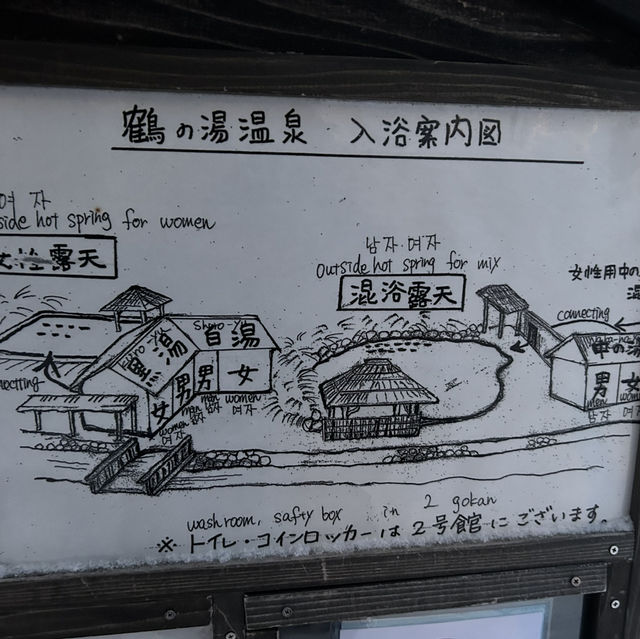 鶴の湯温泉 入浴案内図
여자
side hot spring for women
女性露天
남자·여자
Outside hot spring for mix
混浴露天
女性用中の
connecting
Shiro-Yu
白湯
黒湯
中の湯
男 女
男 男 女
女
men women
men women
남자 여자
남자 여자
women
여자
necting
wash room, safty box in 2 gokan
※トイレ・コインロッカーは2号館にございます。